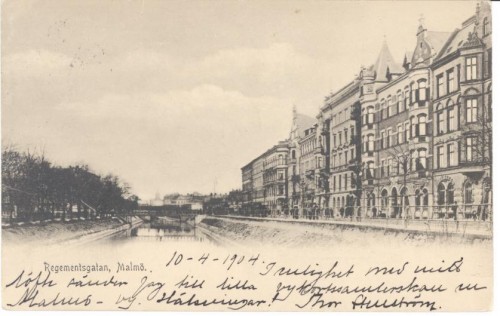 Regementsgatan, Malmö.
10-4-1904. I enlighet med mitt
löfte sänder Jag till lilla vykortssamlerskan en
Malmö-vy. Hälsningar! Thor